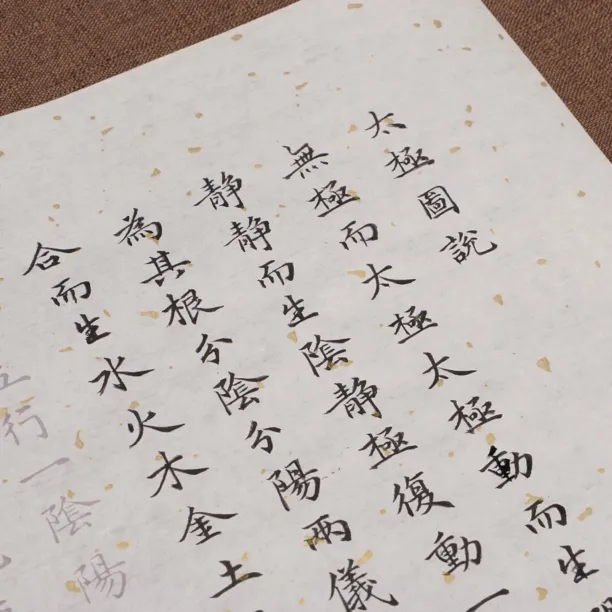 太極圖說
無極而太極太極動而生
靜靜而生陰靜極復動一
為其根分陰分陽兩儀
合而生水火木金土
行一陰陽